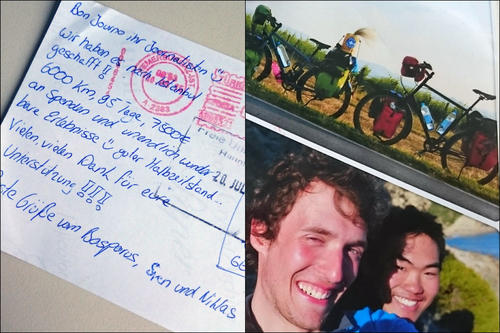 Bon Journo ihr Journalisten ☺
Wir haben es nach Istanbul
geschafft !!
6000 Km, 95 Tage, 7500€
an Spenden und unendlich wunder-
bare Erlebnisse ☺ guter Halbzeitstand...
Vielen, vielen Dank für eure
Unterstützung !!!
Grüße vom Bosporus, Sven und Niklas
Freie
20. JUL